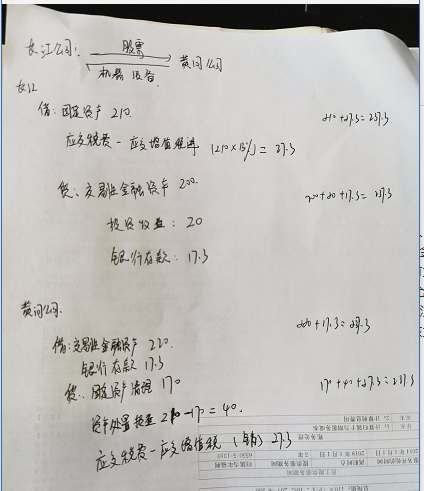 长江公司: 股票 黄河公司
机器设备
长江
借: 固定资产 210. 210+27.3=237.3
应交税费-应交增值税进 (210×13%)= 27.3
贷: 交易性金融资产 200. 200+20+17.3= 237.3
投资收益: 20
银行存款: 17.3
黄河公司. 220+17.3=237.3
借:交易性金融资产 220.
银行存款 17.3
贷: 固定资产清理 170 170+40+27.3=237.3
资产处置损益 210-170=40.
应交税费-应交增值税 (销) 27.3